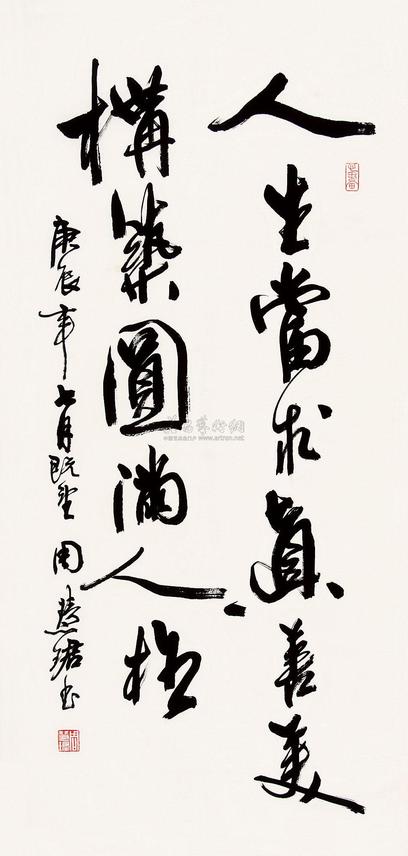 人生當求真善美
構築圓滿人格
庚辰年七月既望周慧珺書
www.artron.net